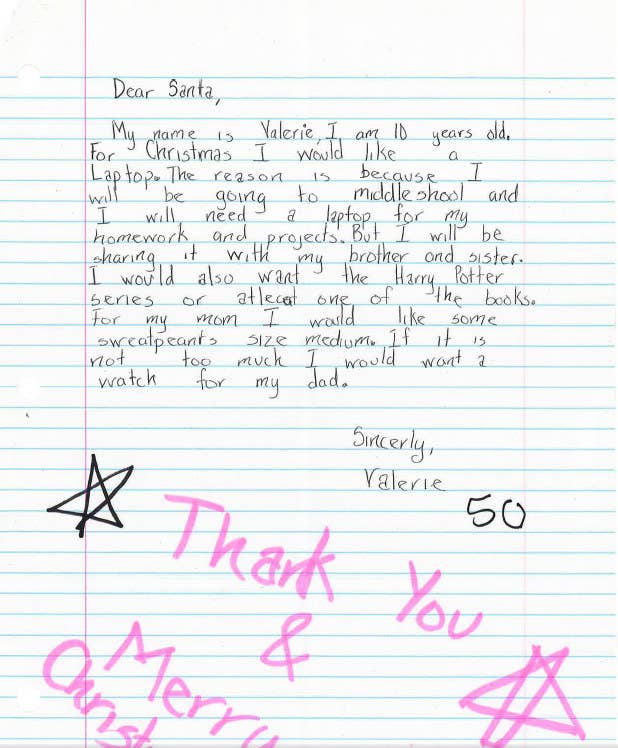 Dear Santa,
My name is Valerie, I am 10 years old.
For Christmas I would like a
Laptop. The reason is because I
will be going to middle shool and
I will need a laptop for my
homework and projects. But I will be
sharing it with my brother and sister.
I would also want the Harry Potter
series or atleast one of the books.
For my mom I would like some
sweatpeants size medium. If it is
not too much I would want a
watch for my dad.
Sincerly,
Valerie
50
Thank You
&
Merry
Christ